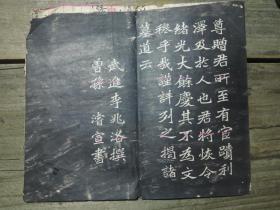 尊贈君所至有官蹟利
澤及於人也君將恢令
緒光大餘慶其不為文
穆乎我謹詳列之揭諸
墓道云
武進李兆洛撰
曾孫濬宣書